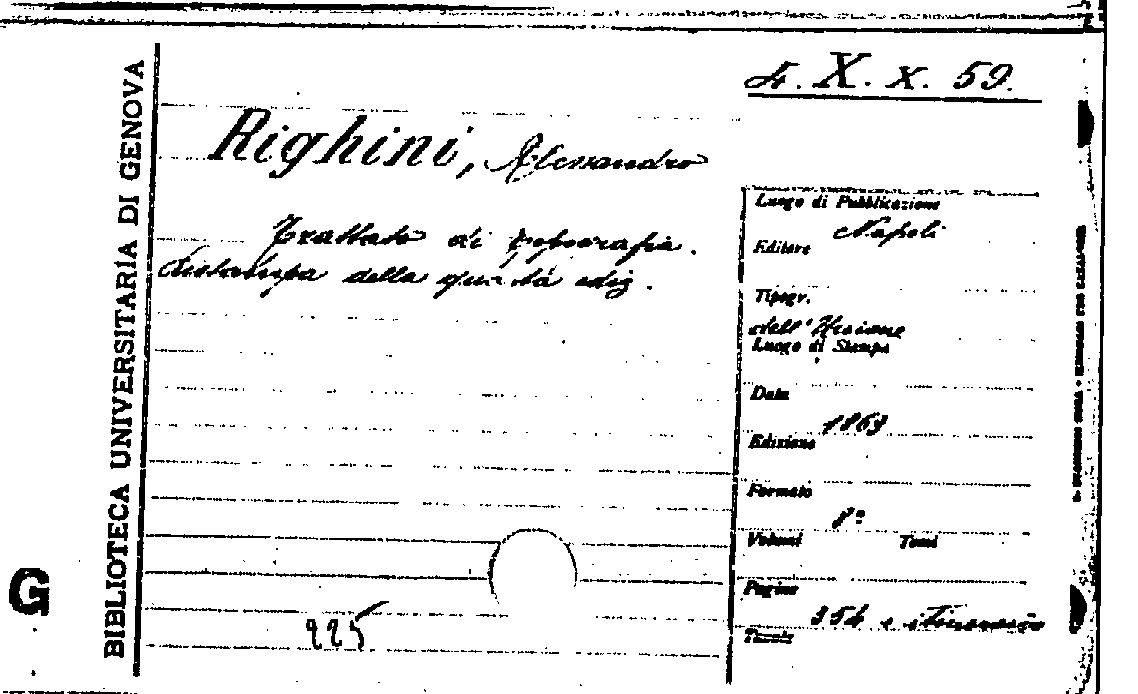 4. X. X. 59.
Righini, Alessandro
Trattato di
della quinta ediz.
BIBLIOTECA UNIVERSITARIA DI GENOVA
G
225
Luogo di Pubblicazione
Napoli
Editore
Tipogr.
dell'
Luogo di Stampa
Data
1863
Edizione
Formato
8º
Volumi Tomi
Pagine
354 e
Tavole